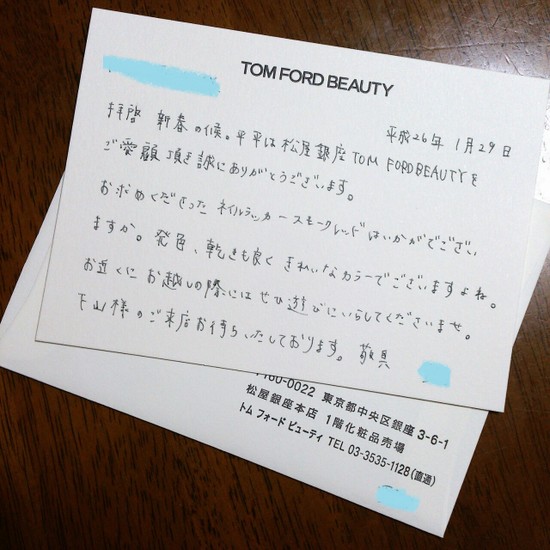 TOM FORD BEAUTY
平成26年 1月29日
拝啓 新春の候。平平は松屋銀座TOM FORDBEAUTYを
ご愛顧頂き誠にありがとうございます。
お求めくださった ネイルラッカー スモークレッドはいかがでござい
ますか。発色、乾きも良く きれいなカラーでございますよね。
お近くに お越しの際には ぜひ遊びにいらしてくださいませ。
下山様のご来店お待ちいたしております。敬具
〒100-0022 東京都中央区銀座 3-6-1
松屋銀座本店 1階化粧品売場
トム フォード ビューティ TEL 03-3535-1128(直通)